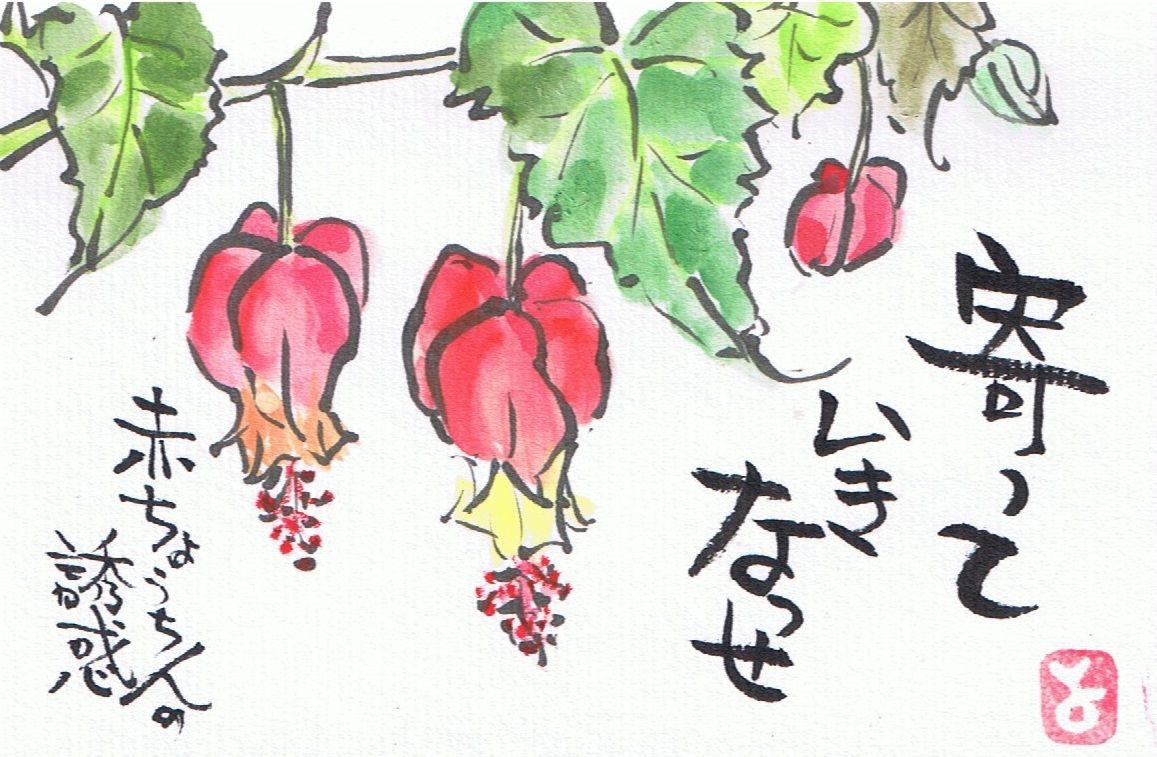 寄って
いき
なっせ
赤ちょうちんの
誘惑